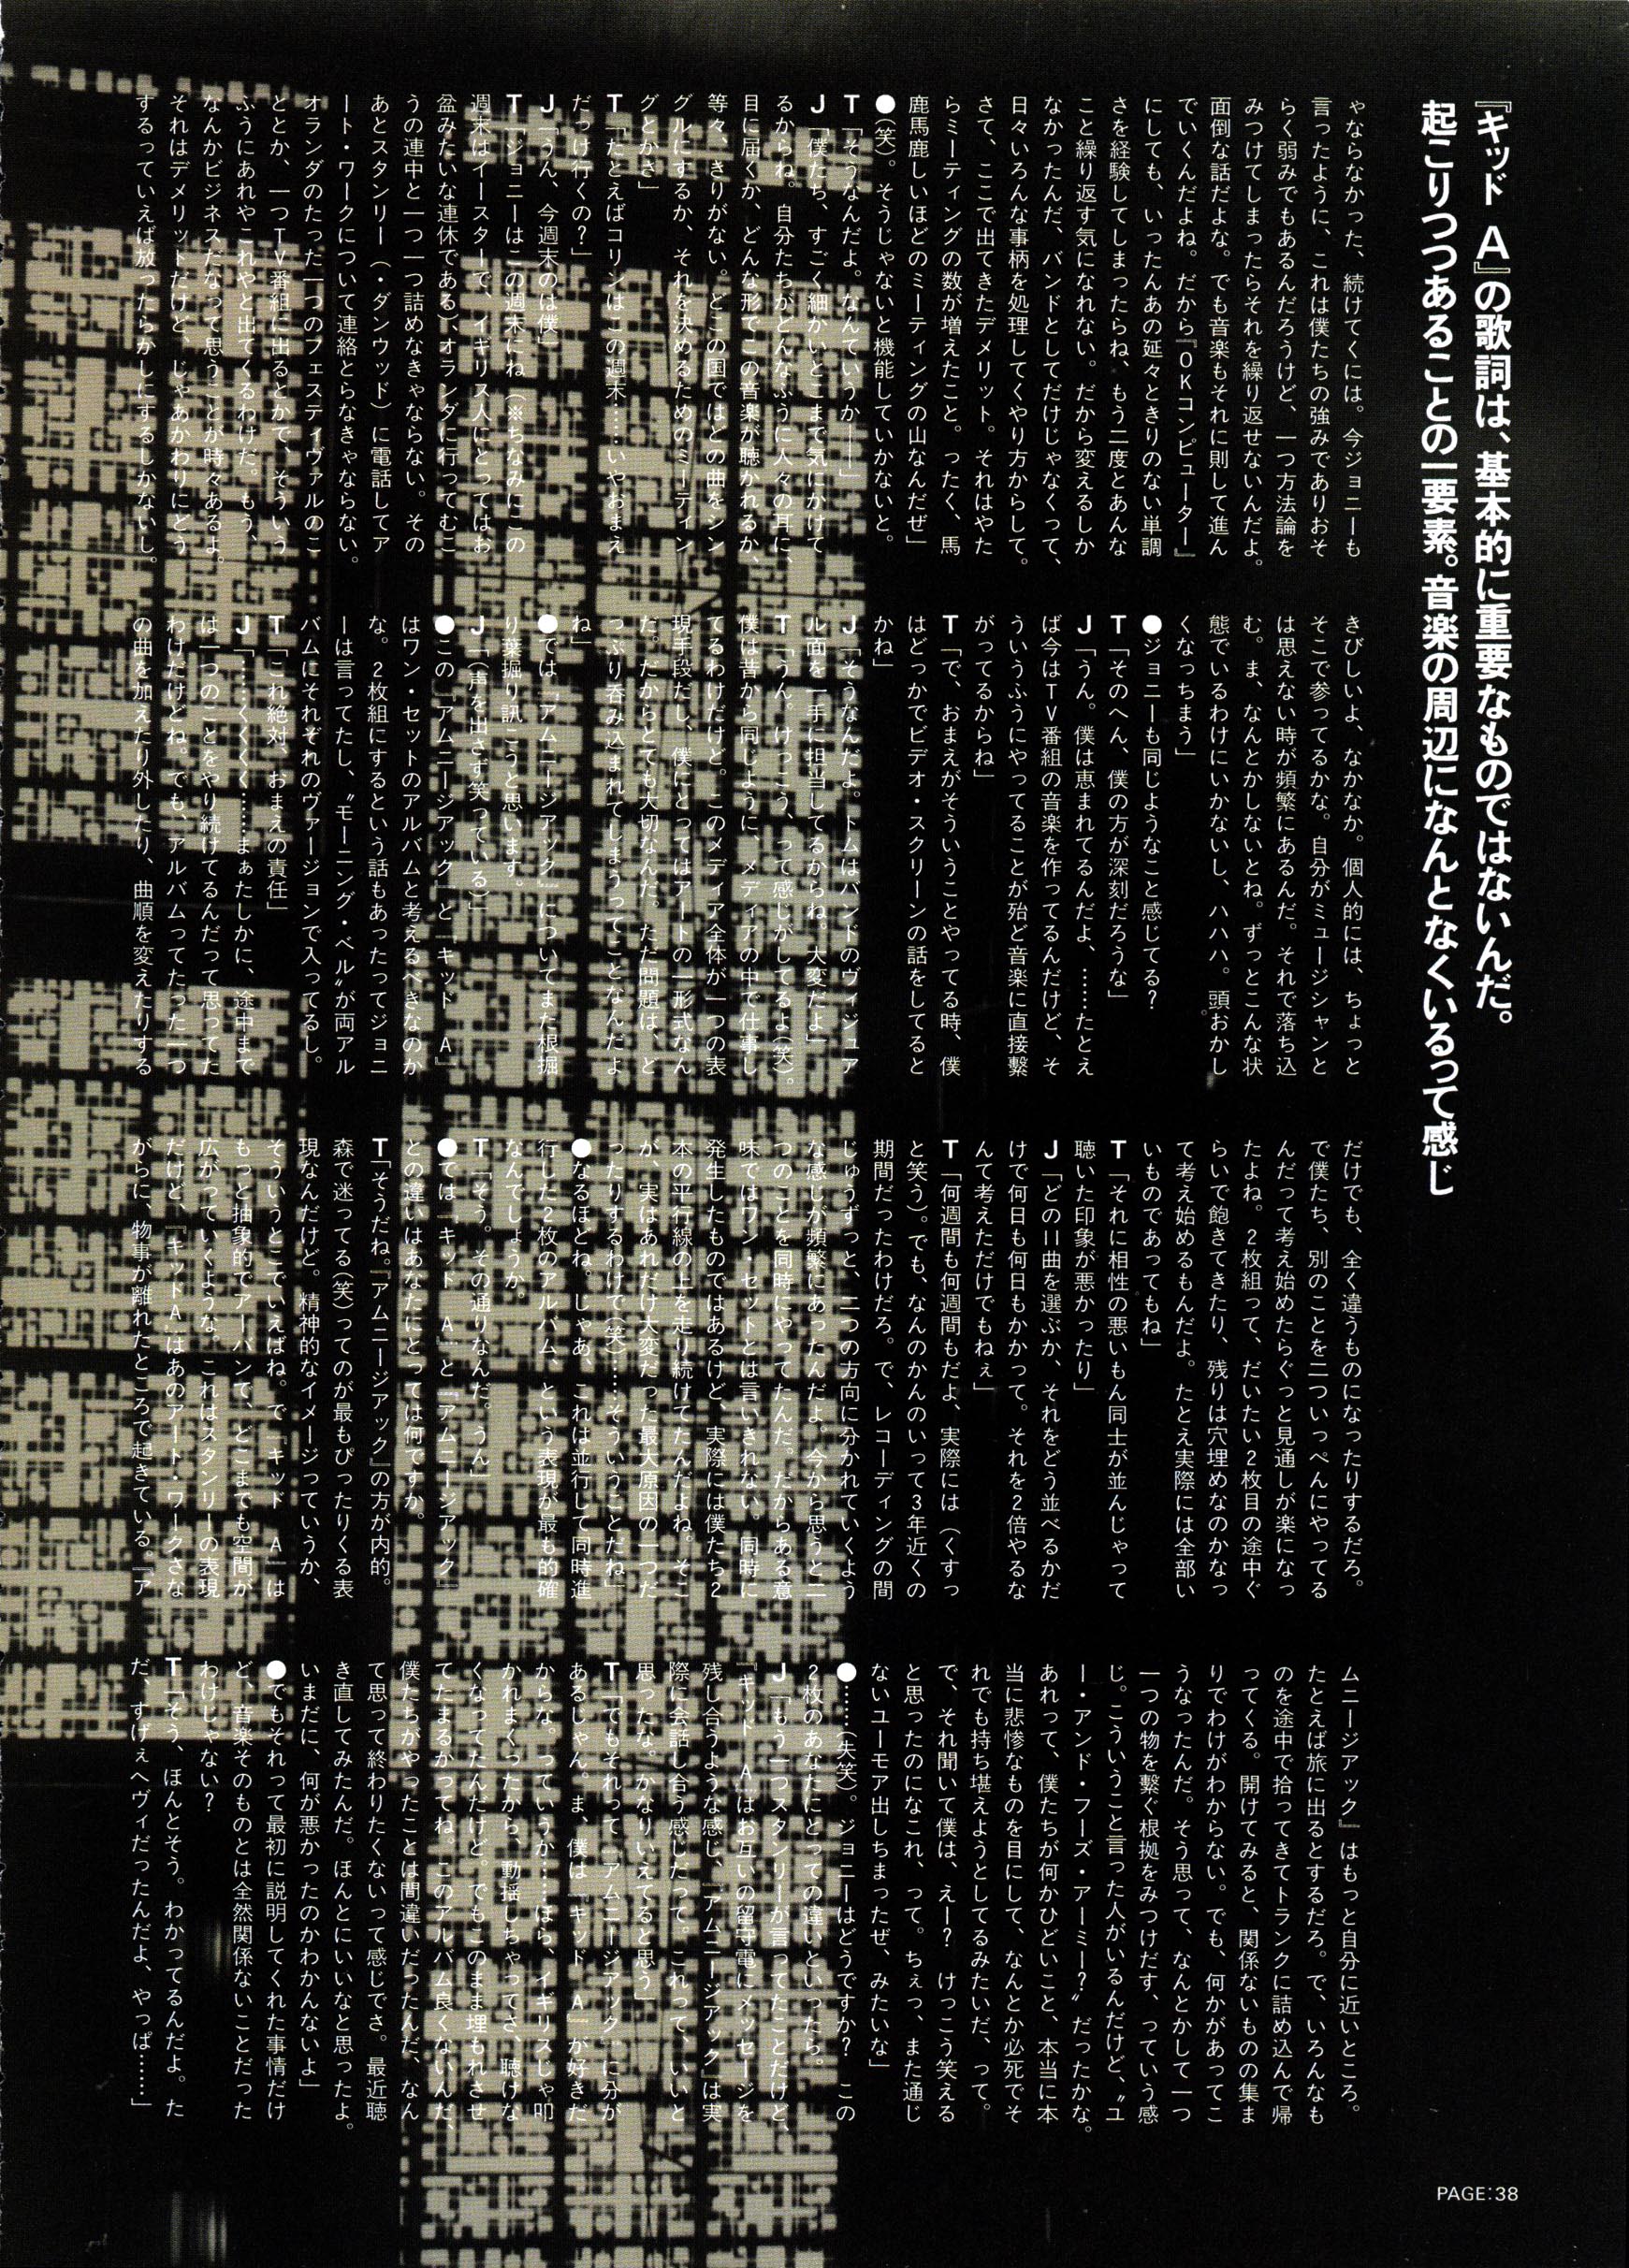 『キッド A』の歌詞は、基本的に重要なものではないんだ。
起こりつつあることの一要素。音楽の周辺になんとなくいるって感じ
ゃならなかった、続けてくには。今ジョニーも
言ったように、これは僕たちの強みでありおそ
らく弱みでもあるんだろうけど、一つ方法論を
みつけてしまったらそれを繰り返せないんだよ。
面倒な話だよな。でも音楽もそれに則して進ん
でいくんだよね。だから『OKコンピューター』
にしても、いったんあの延々ときりのない単調
さを経験してしまったらね、もう二度とあんな
こと繰り返す気になれない。だから変えるしか
なかったんだ、バンドとしてだけじゃなくって、
日々いろんな事柄を処理してくやり方からして。
さて、ここで出てきたデメリット。それはやた
らミーティングの数が増えたこと。ったく、馬
鹿馬鹿しいほどのミーティングの山なんだぜ」
●(笑)。そうじゃないと機能していかないと。
T「そうなんだよ。なんていうか――」
J「僕たち、すごく細かいとこまで気にかけて
るからね。自分たちがどんなふうに人々の耳に、
目に届くか、どんな形でこの音楽が聴かれるか、
等々、きりがない。どこの国ではどの曲をシン
グルにするか、それを決めるためのミーティン
グとかさ」
T「たとえばコリンはこの週末……いやおまえ
だっけ行くの?」
J「うん、今週末のは僕」
T「ジョニーはこの週末にね(※ちなみにこの
週末はイースターで、イギリス人にとってはお
盆みたいな連休である)、オランダに行ってむこ
うの連中と一つ一つ詰めなきゃならない。その
あとスタンリー(・ダンウッド)に電話してア
ート・ワークについて連絡とらなきゃならない。
オランダのたった一つのフェスティヴァルのこ
ととか、一つTV番組に出るとかで、そういう
ふうにあれやこれやと出てくるわけだ。もう、
なんかビジネスだなって思うことが時々あるよ。
それはデメリットだけど、じゃあかわりにどう
するっていえば放ったらかしにするしかないし。
きびしいよ、なかなか。個人的には、ちょっと
そこで参ってるかな。自分がミュージシャンと
は思えない時が頻繁にあるんだ。それで落ち込
む。ま、なんとかしないとね。ずっとこんな状
態でいるわけにいかないし、ハハハ。頭おかし
くなっちまう」
●ジョニーも同じようなこと感じてる?
T「そのへん、僕の方が深刻だろうな」
J「うん。僕は恵まれてるんだよ、……たとえ
ば今はTV番組の音楽を作ってるんだけど、そ
ういうふうにやってることが殆ど音楽に直接繋
がってるからね」
T「で、おまえがそういうことやってる時、僕
はどっかでビデオ・スクリーンの話をしてると
かね」
J「そうなんだよ。トムはバンドのヴィジュア
ル面を一手に担当してるからね。大変だよ」
T「うん。けっこう、って感じがしてるよ(笑)。
僕は昔から同じように、メディアの中で仕事し
てるわけだけど。このメディア全体が一つの表
現手段だし、僕にとってはアートの一形式なん
だ。だからとても大切なんだ。ただ問題は、ど
っぷり呑み込まれてしまうってことなんだよ
ね」
●では『アムニージアック』についてまた根掘
り葉掘り訊こうと思います。
J「(声を出さず笑っている)」
●この『アムニージアック』と『キッド A』
はワン・セットのアルバムと考えるべきなのか
な。2枚組にするという話もあったってジョニ
ーは言ってたし、〝モーニング・ベル〟が両アル
バムにそれぞれのヴァージョンで入ってるし。
T「これ絶対、おまえの責任」
J「……くくくく……まぁたしかに、途中まで
は一つのことをやり続けてるんだって思ってた
わけだけどね。でも、アルバムってたった一つ
の曲を加えたり外したり、曲順を変えたりする
だけでも、全く違うものになったりするだろ。
で僕たち、別のことを二ついっぺんにやってる
んだって考え始めたらぐっと見通しが楽になっ
たよね。2枚組って、だいたい2枚目の途中ぐ
らいで飽きてきたり、残りは穴埋めなのかなっ
て考え始めるもんだよ。たとえ実際には全部い
いものであってもね」
T「それに相性の悪いもん同士が並んじゃって
聴いた印象が悪かったり」
J「どの11曲を選ぶか、それをどう並べるかだ
けで何日も何日もかかって。それを2倍やるな
んて考えただけでもねぇ」
T「何週間も何週間もだよ、実際には(くすっ
と笑う)。でも、なんのかんのいって3年近くの
期間だったわけだろ。で、レコーディングの間
じゅうずっと、二つの方向に分かれていくよう
な感じが頻繁にあったんだよ。今から思うと二
つのことを同時にやってたんだ。だからある意
味ではワン・セットとは言いきれない。同時に
発生したものではあるけど、実際には僕たち2
本の平行線の上を走り続けてたんだよね。そこ
が、実はあれだけ大変だった最大原因の一つだ
ったりするわけで(笑)……そういうことだね」
●なるほどね。じゃあ、これは並行して同時進
行した2枚のアルバム、という表現が最も的確
なんでしょうか。
T「そう。その通りなんだ。うん」
●では『キッド A』と『アムニージアック』
との違いはあなたにとっては何ですか。
T「そうだね。『アムニージアック』の方が内的。
森で迷ってる(笑)ってのが最もぴったりくる表
現なんだけど。精神的なイメージっていうか、
そういうとこでいえばね。で『キッド A』は
もっと抽象的でアーバンで、どこまでも空間が
広がっていくような。これはスタンリーの表現
だけど、『キッドA』はあのアート・ワークさな
がらに、物事が離れたところで起きている。『ア
ムニージアック』はもっと自分に近いところ。
たとえば旅に出るとするだろ。で、いろんなも
のを途中で拾ってきてトランクに詰め込んで帰
ってくる。開けてみると、関係ないものの集ま
りでわけがわからない。でも、何かがあってこ
うなったんだ。そう思って、なんとかして一つ
一つの物を繋ぐ根拠をみつけだす、っていう感
じ。こういうこと言った人がいるんだけど、〝ユ
ー・アンド・フーズ・アーミー?〟だったかな。
あれって、僕たちが何かひどいこと、本当に本
当に悲惨なものを目にして、なんとか必死でそ
れでも持ち堪えようとしてるみたいだ、って。
で、それ聞いて僕は、えー? けっこう笑える
と思ったのになこれ、って。ちぇっ、また通じ
ないユーモア出しちまったぜ、みたいな」
●……(失笑)。ジョニーはどうですか? この
2枚のあなたにとっての違いといったら。
J「もう一つスタンリーが言ってたことだけど、
『キッド A』はお互いの留守電にメッセージを
残し合うような感じ、『アムニージアック』は実
際に会話し合う感じだって。これって、いいと
思ったな。かなりいえてると思う」
T「でもそれって『アムニージアック』に分が
あるじゃん。ま、僕は『キッド A』が好きだ
からな。っていうか……ほら、イギリスじゃ叩
かれまくったから、動揺しちゃってさ、聴けな
くなってたんだけど。でもこのまま埋もれさせ
てたまるかってね。このアルバム良くないんだ、
僕たちがやったことは間違いだったんだ、なん
て思って終わりたくないって感じでさ。最近聴
き直してみたんだ。ほんとにいいなと思ったよ。
いまだに、何が悪かったのかわかんないよ」
●でもそれって最初に説明してくれた事情だけ
ど、音楽そのものとは全然関係ないことだった
わけじゃない?
T「そう、ほんとそう。わかってるんだよ。た
だ、すげぇヘヴィだったんだよ、やっぱ……」
PAGE:38